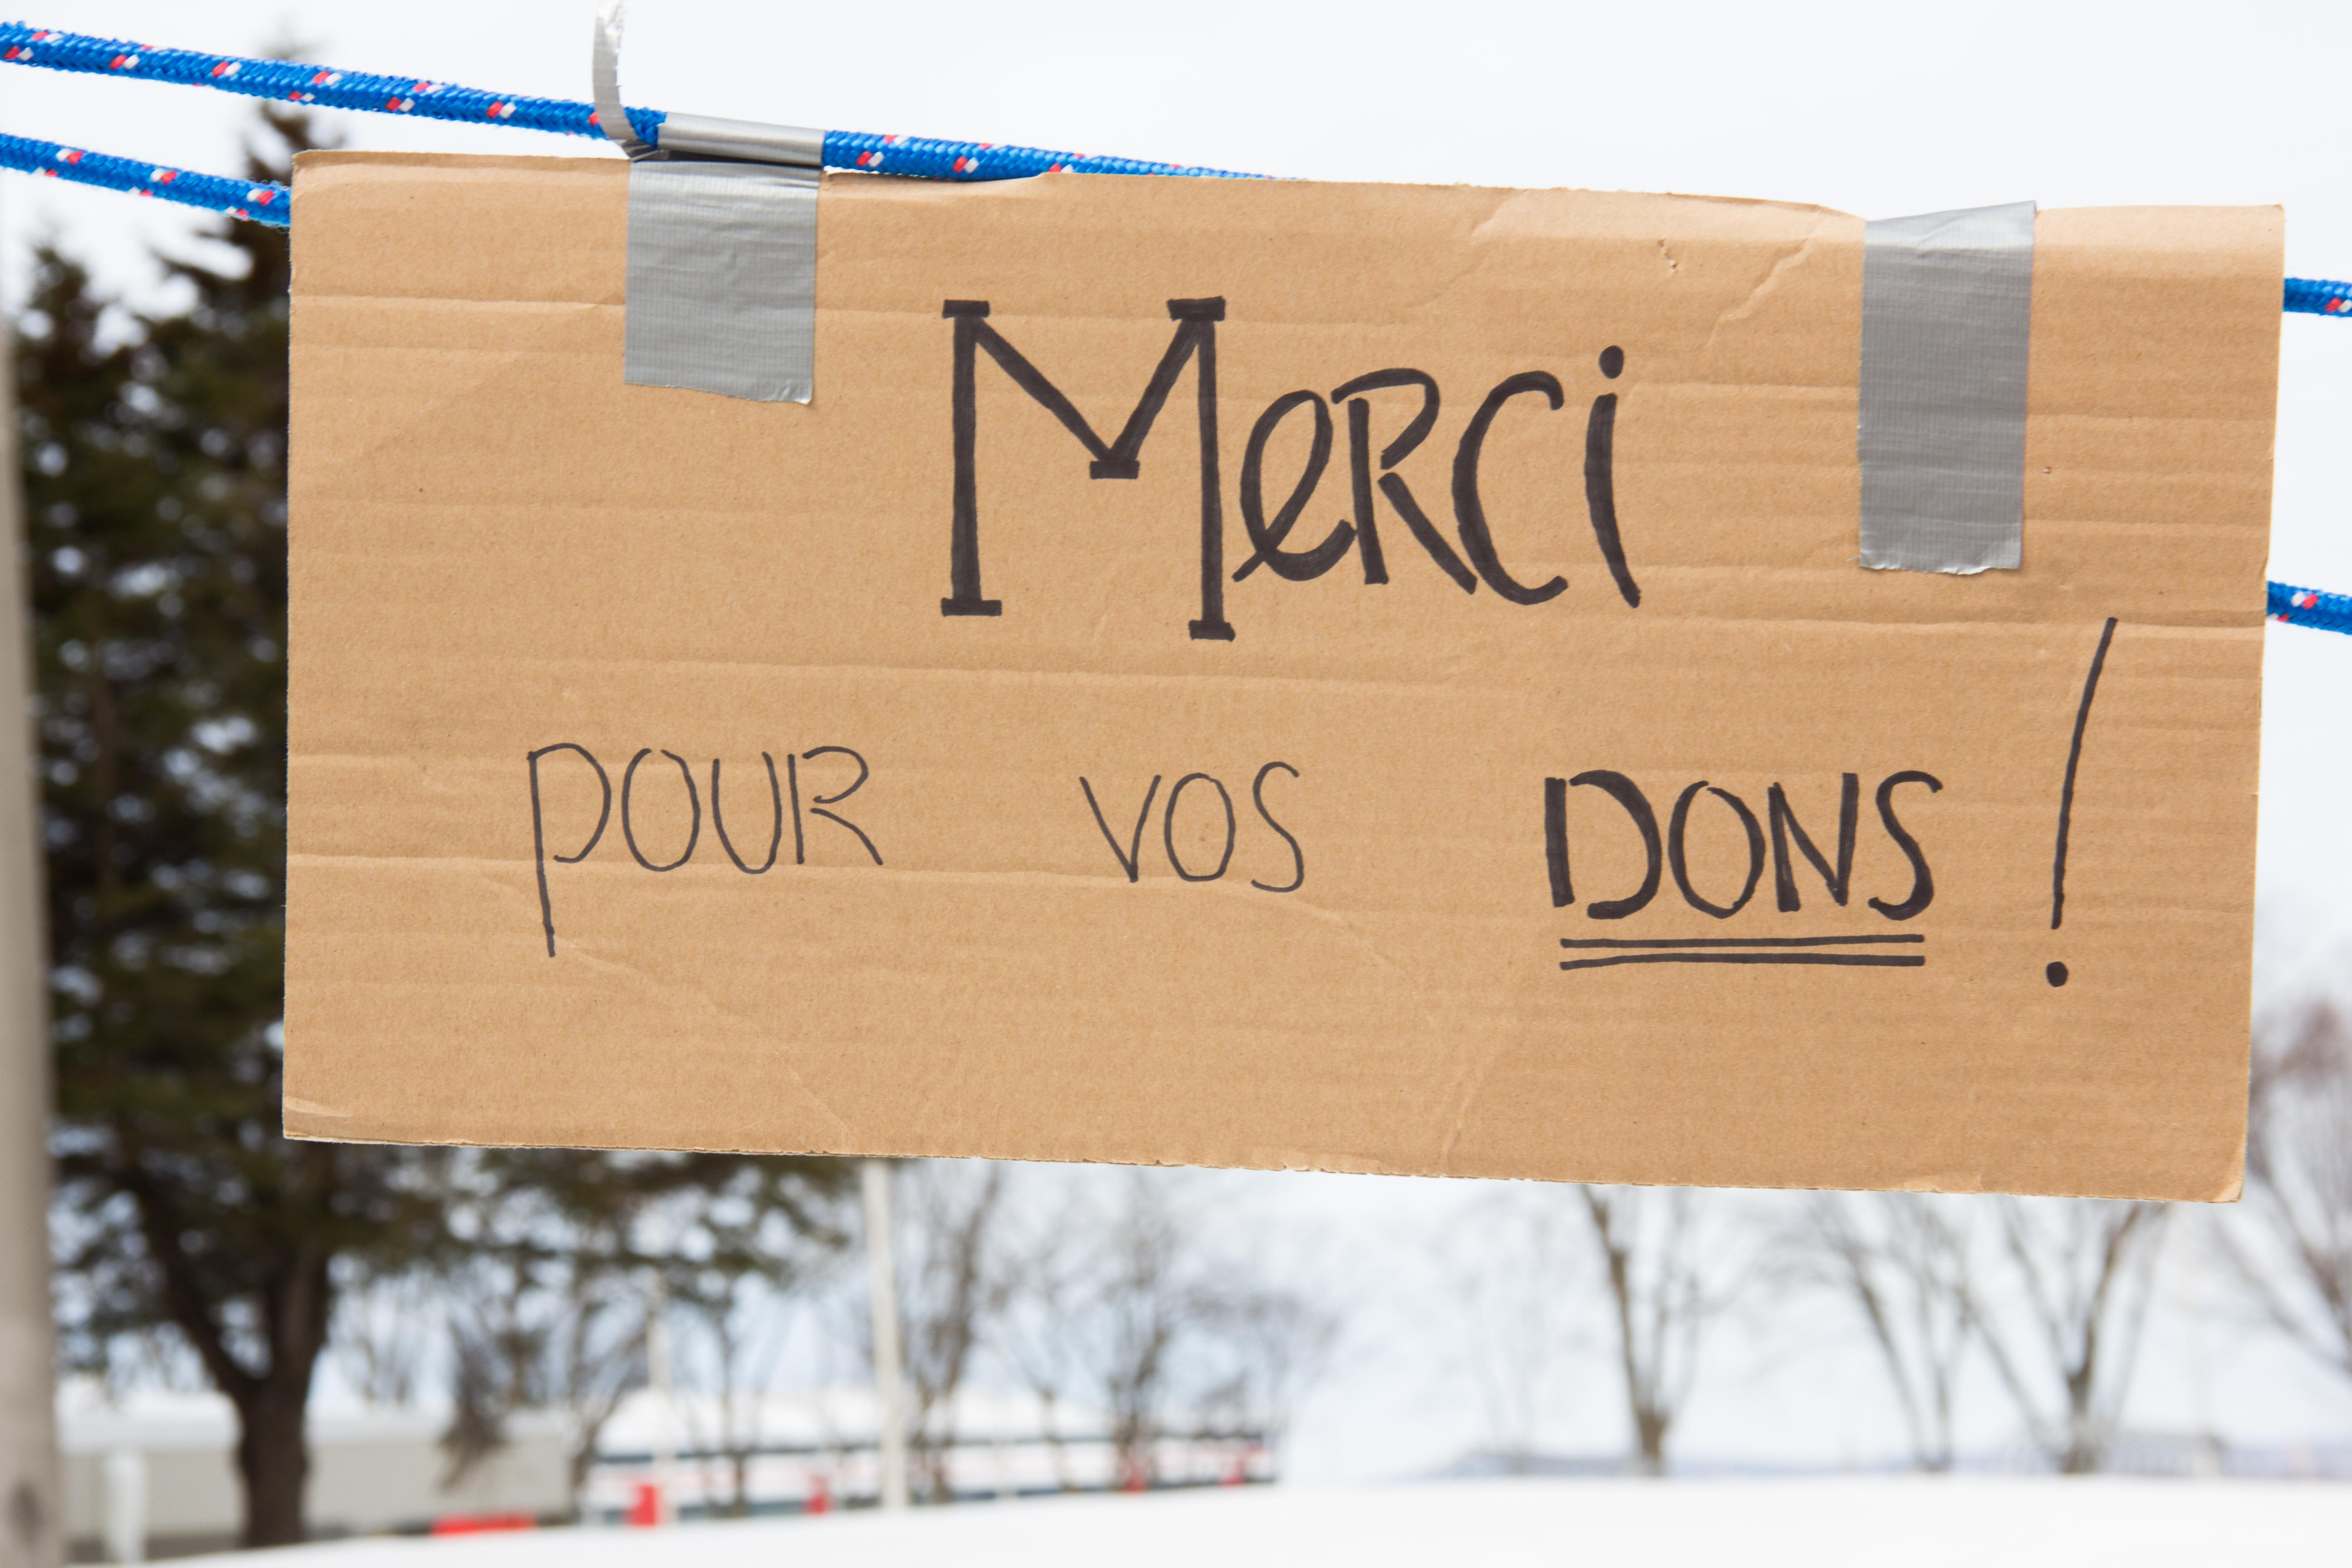 Merci
POUR VOS DONS!